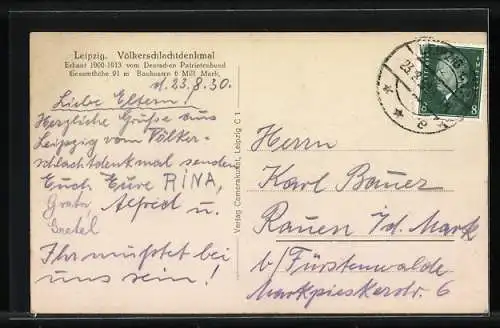 Leipzig. Völkerschlachtdenkmal
Erbaut 1900-1913 vom Deutschen Patriotenbund
Gesamthöhe 91 m Baukosten 6 Mill. Mark.
d. 23.8.30.
Liebe Eltern!
Herzliche Grüße aus
Leipzig vom Völker-
schlachtdenkmal senden
Euch Eure RINA,
Alfred u.
Gretel
Ihr müßtet bei
uns sein!
Verlag Contorkunst, Leipzig C 1
LEIPZIG
8
Herrn
Karl Bauer
Rauen i/d. Mark
b/ Fürstenwalde
Markpieskerstr. 6